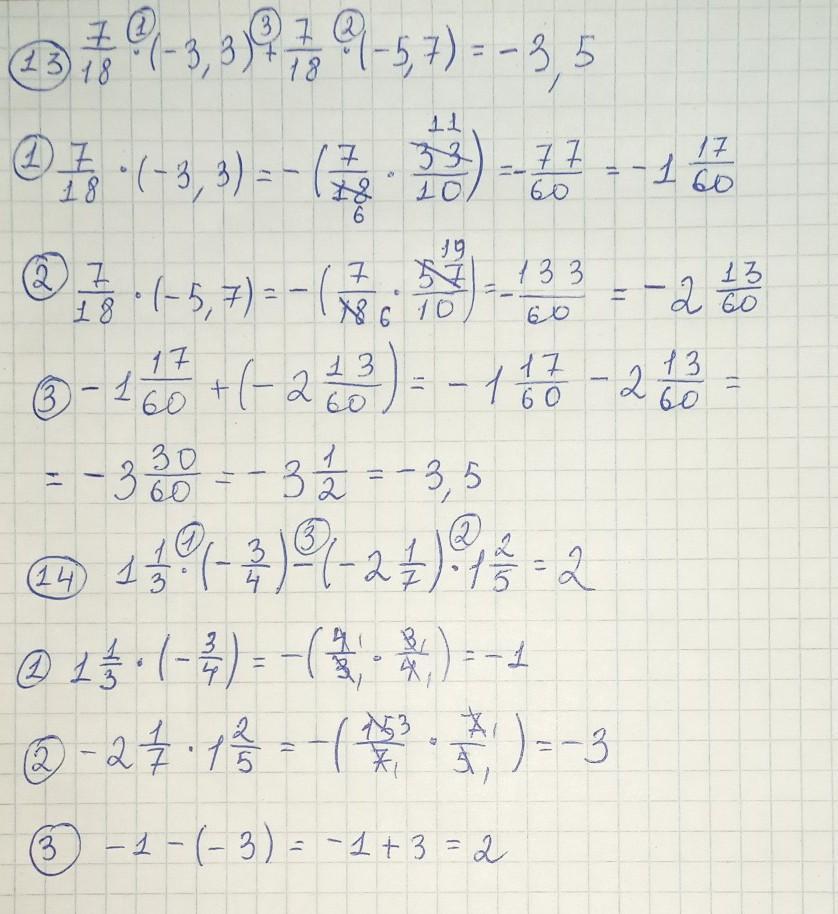 13) 7/18 ①· (-3,3) ③+ 7/18 ②· (-5,7) = -3,5
① 7/18 · (-3,3) = -(7/18 6 · 33 11/10) = -77/60 = -1 17/60
② 7/18 · (-5,7) = -(7/18 6 · 57 19/10) = -133/60 = -2 13/60
③ -1 17/60 + (-2 13/60) = -1 17/60 - 2 13/60 =
= -3 30/60 = -3 1/2 = -3,5
14) 1 1/3 ①· (-3/4) ③- (-2 1/7) ②· 1 2/5 = 2
① 1 1/3 · (-3/4) = -(4 1/3 1 · 3 1/4 1) = -1
② -2 1/7 · 1 2/5 = -(15 3/7 1 · 7 1/5 1) = -3
③ -1 - (-3) = -1 + 3 = 2